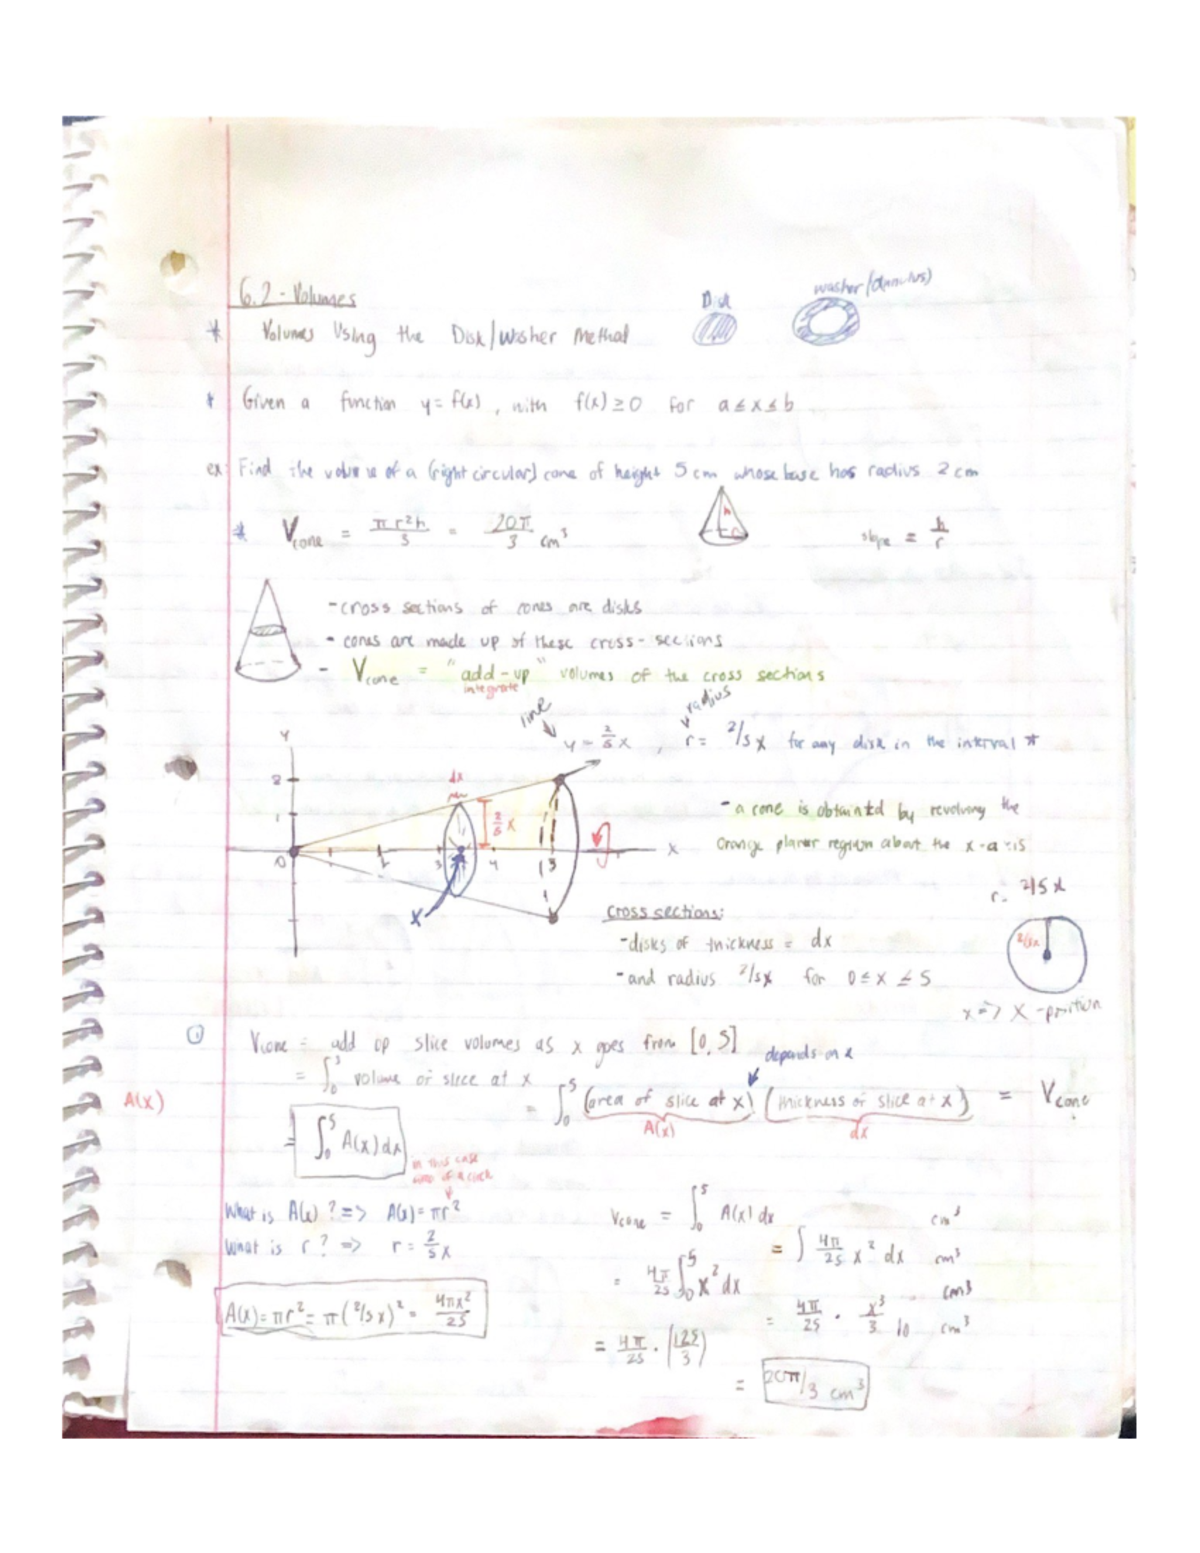 6.2 - Volumes
Disk
washer/(annulus)
* Volumes Using the Disk/Washer Method
* Given a function y = f(x), with f(x) ≥ 0 for a ≤ x ≤ b
ex: Find the volume of a (right circular) cone of height 5 cm whose base has radius 2 cm
* Vcone = πr²h/3 = 20π/3 cm³
h
r
slope = h/r
- cross sections of cones are disks
- cones are made up of these cross-sections
- Vcone = "add-up" volumes of the cross sections
integrate
line
radius
y = 2/5 x , r = 2/5 x for any disk in the interval *
y
2
1
0
dx
2/5 x
2
3
4
5
x
x
- a cone is obtained by revolving the
orange planar region about the x-axis
r = 2/5 x
2/5x
x => x-position
Cross sections:
- disks of thickness = dx
- and radius 2/5x for 0 ≤ x ≤ 5
① Vcone = add up slice volumes as x goes from [0, 5]
= ∫₀⁵ volume of slice at x
depends on x
A(x)
= ∫₀⁵ (area of slice at x) (thickness of slice at x) = Vcone
A(x)
dx
= ∫₀⁵ A(x) dx
in this case
area of a circle
What is A(x)? => A(x) = πr²
What is r? => r = 2/5 x
A(x) = πr² = π(2/5 x)² = 4πx²/25
Vcone = ∫₀⁵ A(x) dx cm³
= ∫ 4π/25 x² dx cm³
= 4π/25 ∫₀⁵ x² dx cm³
= 4π/25 · x³/3 cm³
= 4π/25 · (125/3)
= 20π/3 cm³